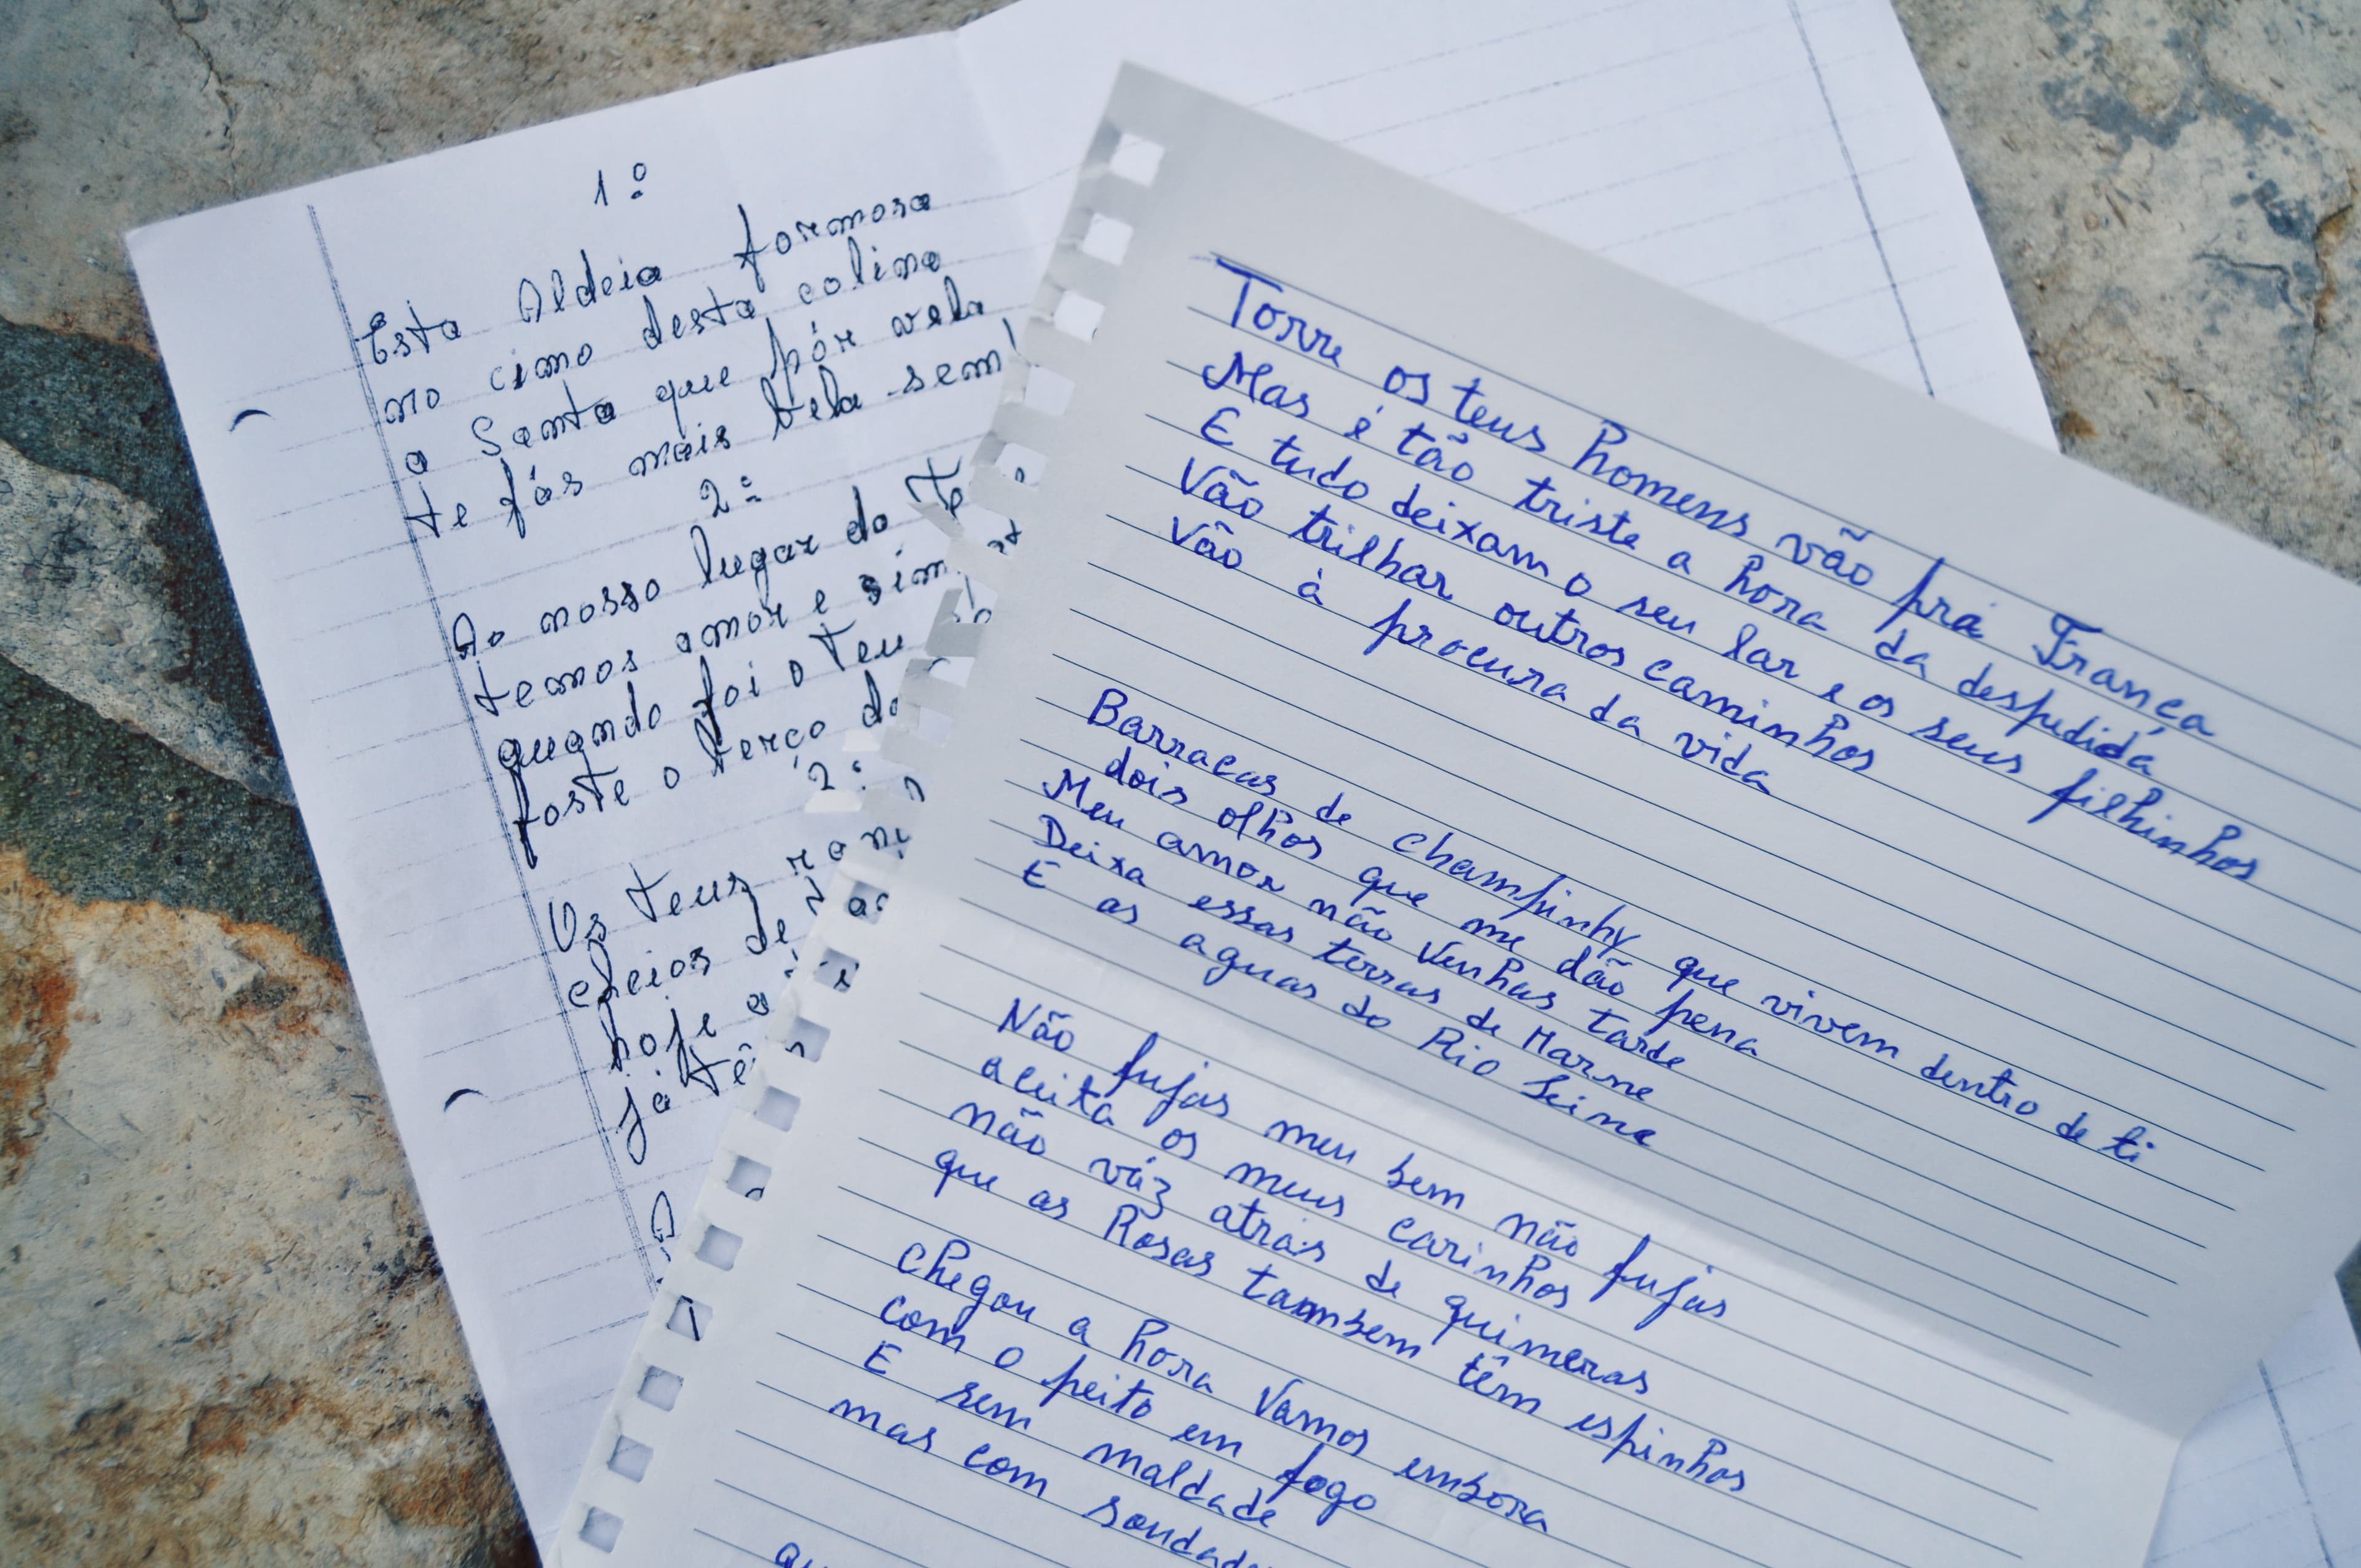 1º
Esta Aldeia formosa
no cimo desta colina
a Santa que pór vela
te fás mais bela sem
2ª
Ao nosso lugar do Te
temos amor e sim
quando foi o teu
foste o terço do
2ª
Os teus
cheios de
hoje a
já tê
A
Torre os teus homens vão prá França
Mas é tão triste a hora da despedida
E tudo deixam o seu lar e os seus filhinhos
Vão trilhar outros caminhos
Vão à procura da vida
Barracas de Champinhy que vivem dentro de ti
dois olhos que me dão pena
Meu amor não Venhas tarde
Deixa essas terras de Marne
E as aguas do Rio Seine
Não fujas meu bem não fujas
aceita os meus carinhos
não váz atrás de quimeras
que as Rosas tambem têm espinhos
Chegou a hora Vamos embora
com o peito em fogo
E sem maldade
mas com soudade
qu